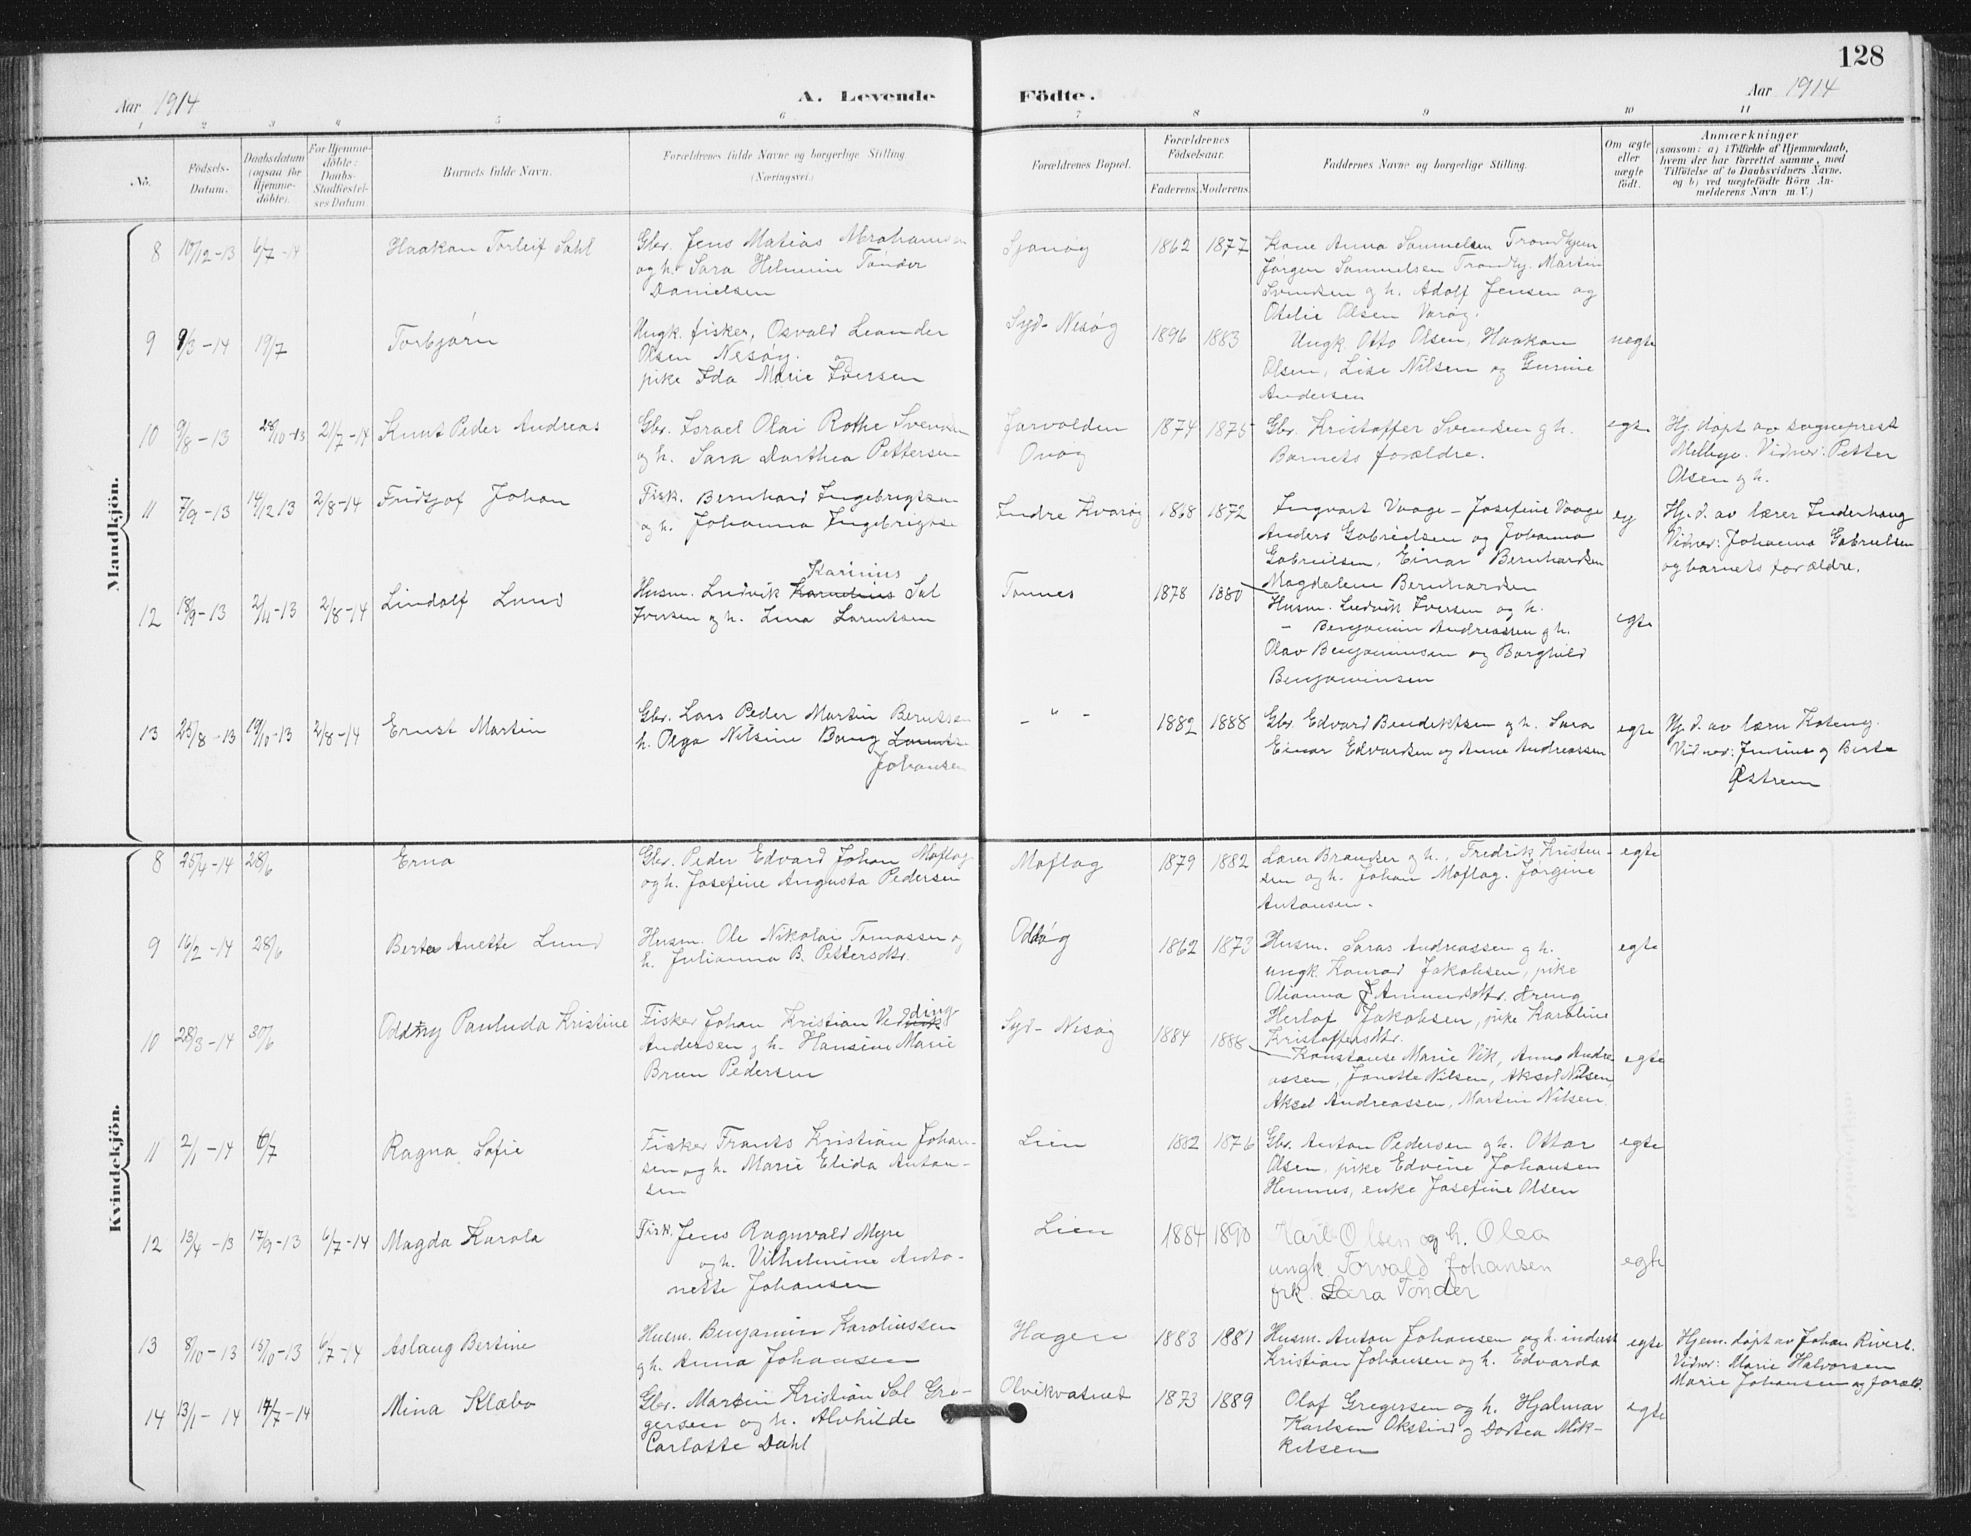 128
Aar 1914
A. Levende Födte.
Aar 1914
1 2 3 4 5 6 7 8 9 10 11
No.
Födsels-
Datum.
Daabsdatum
(ogsaa for
Hjemme-
döbte).
For Hjemme-
döbte:
Daabs-
Stadfæstel-
ses Datum
Barnets fulde Navn.
Forældrenes fulde Navne og borgerlige Stilling
(Næringsvei.)
Forældrenes Bopæl.
Forældrenes
Födselsaar.
Faderens. Moderens.
Faddernes Navne og borgerlige Stilling.
Om ægte
eller
uægte
født.
Anmærkninger
(saasom: a) i Tilfælde af Hjemmedaab,
hvem der har forrettet samme, med
Tilføielse af to Daabsvidners Navne.
og b) ved uægtefödte Börn An-
melderens Navn m. V.)
Mandkjön.
8 10/12-13 6/7-14 Haakon Torleif Dahl
Gbr. Jens Matias Abrahamsen
og h. Sara Helmine Tønder
Danielsen
Sjonøy 1862 1877
Kone Anna Samuelsen Trondhjem
Jørgen Samuelsen Trondhj. Martin
Svendsen og h. Adolf Jensen og
Otelie Olsen Varøy.
9 9/3-14 19/7 Torbjørn
Ungk. fisker, Osvald Leander
Olsen Nesøy. og
pike Ida Marie Iversen
Syd-Nesøy 1896 1883
Ungk. Otto Olsen, Haakon
Olsen, Lise Nilsen og Gurine
Andersen
uegte
10 9/8-13 28/10-13 21/7-14 Knut Peder Andreas
Gbr. Israel Olai Rothe Svendsen
og h. Sara Dorthea Pettersen
Jorvolden
Onøy
1874 1875
Gbr. Kristoffer Svendsen og h.
Barnets forældre.
egte
Hj. døpt av sogneprest
Mellbye. Vidner: Petter
Olsen og h.
11 7/9-13 14/12 13 2/8-14 Fridtjof Johan
Fisk. Bernhard Ingebrigtsen
og h. Johanna Ingebrigtse
Indre Kvarøy 1868 1872
Ingvart Vaage - Josefine Vaage
Anders Gabrielsen og Johanna
Gabrielsen, Einar Bernhardsen
Magdalene Bernhardsen
eg
Hj. d. av lærer Inderhaug
Vidner: Johanna Gabrielsen
og barnets forældre.
12 18/9-13 2/11-13 2/8-14 Lindolf Lund
Karinius
Husm. Ludvik Kornelius Sal
Iversen og h. Lina Lorentsen
Tonnes 1878 1880
Husm. Ludvik Iversen og h.
- Benjamin Andreassen og h.
Olav Benjaminsen og Borghild
Benjaminsen
egte
13 25/8-13 19/10-13 2/8-14 Ernst Martin
Gbr. Lars Peder Martin Berntsen
h. Olga Nilsine Bang
Johansen
- " - 1882 1888
Gbr Edvard Bendiktsen og h. Sara
Einar Edvardsen og Anne Andreassen
egte
Hj. d. av lærer Koteng.
Vidner: Junius og Berte
Østrem
Kvindekjön.
8 25/4-14 28/6 Erna
Gbr. Peder Edvard Johan Moflag
og h. Josefine Augusta Pedersen
Moflag 1879 1882
Lærer Brandser og h., Fredrik Kristen-
sen og h. Johan Moflag. Jørgine
Antonsen.
egte
9 16/2-14 28/6 Berte Anette Lund
Husm. Ole Nikolai Tomassen og
h. Julianna B. Pettersdtr.
Oddøy 1862 1873
Husm. Saras Andreassen og h.
ungk. Konrad Jakobsen, pike
Olianna J Amundsdtr. dreng
Herlof Jakobsen, pike Karoline
Kristoffersdtr.
egte
10 28/3-14 30/6 Oddny Pauluda Kristine
Fisker Johan Kristian Vedding
Andersen og h. Hansine Marie
Brun Pedersen
Syd-Nesøy 1884 1888
Konstanse Marie Vik, Anna Andre
assen, Janette Nilsen, Aksel Nilsen
Aksel Andreassen, Martin Nilsen.
egte
11 2/1-14 6/7 Ragna Sofie
Fisker Frants Kristian Johan-
sen og h. Marie Elida Anton-
sen
Lien 1882 1876
Gbr. Anton Pedersen og h. Ottar
Olsen, pike Edvine Johansen
Hemnes, enke Josefine Olsen
egte
12 13/4-13 17/9-13 6/7-14 Magda Karola
Fisk. Jens Ragnvald Myre
og h. Vilhelmine Anto-
nette Johansen
Lien 1884 1890
Karl Olsen og h. Olea
ungk. Torvald Johansen
frk. Sara Tønder
egte
13 8/10-13 15/10-13 6/7-14 Aslaug Bertine
Husm. Benjamin Karoliussen
og h. Anna Johansen
Hagen 1883 1881
Husm. Anton Johansen og h. inderst
Kristian Johansen og h. Edvarda
egte
Hjem. døpt av Johan
Vidner: Marie Halvorsen
Marie Johansen og foræld.
14 13/1-14 14/7-14 Mina Klæbo
Gbr. Martin Kristian Sal Gre-
gersen og h. Alvhilde
Carlotte Dahl
Olvikvatnet 1873 1889
Olaf Gregersen og h. Hjalmar
Karlsen Okstind og Dortea Mik-
kelsen
egte